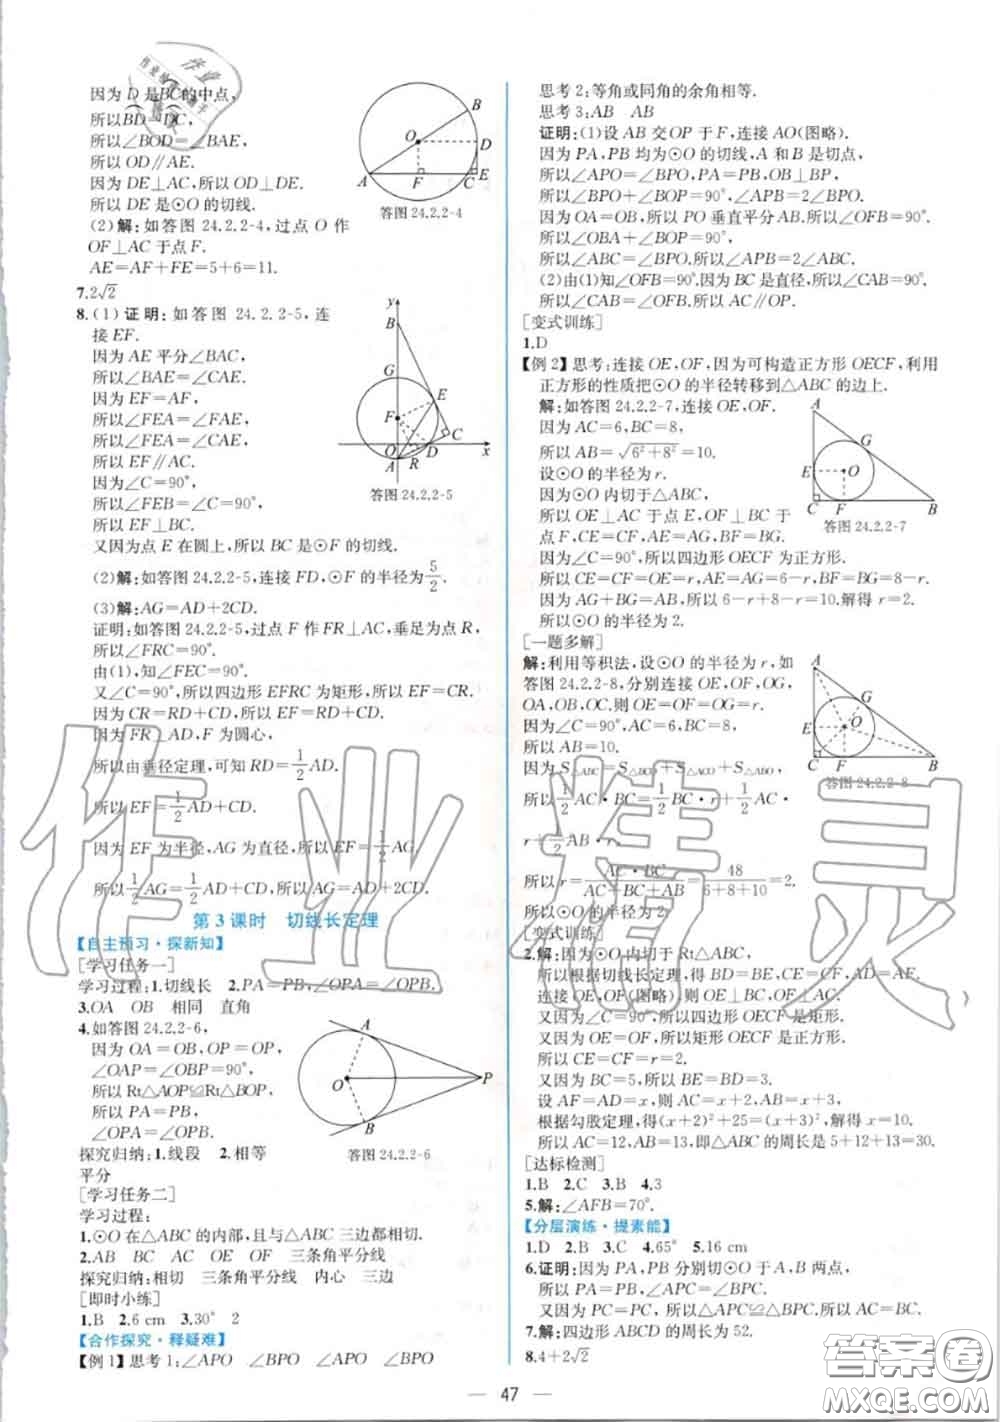 因为D是BC的中点,
所以BD=DC,
所以∠BOD=∠BAE,
所以OD∥AE.
因为DE⊥AC,所以OD⊥DE.
所以DE是⊙O的切线.
(2)解:如答图24.2.2-4,过点O作
OF⊥AC于点F.
AE=AF+FE=5+6=11.
答图24.2.2-4
7.2√2
8.(1)证明:如答图24.2.2-5,连
接EF.
因为AE平分∠BAC,
所以∠BAE=∠CAE.
因为EF=AF,
所以∠FEA=∠FAE,
所以∠FEA=∠CAE,
所以EF∥AC.
因为∠C=90°,
所以∠FEB=∠C=90°,
所以EF⊥BC.
答图24.2.2-5
又因为点E在圆上,所以BC是⊙F的切线.
(2)解:如答图24.2.2-5,连接FD,⊙F的半径为5/2.
(3)解:AG=AD+2CD.
证明:如答图24.2.2-5,过点F作FR⊥AC,垂足为点R,
所以∠FRC=90°.
由(1),知∠FEC=90°.
又∠C=90°,所以四边形EFRC为矩形,所以EF=CR.
因为CR=RD+CD,所以EF=RD+CD.
因为FR⊥AD,F为圆心,
所以由垂径定理,可知RD=1/2AD,
所以EF=1/2AD+CD.
因为EF为半径,AG为直径,所以EF=1/2AG,
所以1/2AG=1/2AD+CD,所以AG=AD+2CD.
第3课时 切线长定理
【自主预习·探新知】
[学习任务一]
学习过程:1.切线长 2.PA=PB,∠OPA=∠OPB.
3.OA OB 相同 直角
4.如答图24.2.2-6,
因为OA=OB,OP=OP,
∠OAP=∠OBP=90°,
所以Rt△AOP≌Rt△BOP,
所以PA=PB,
∠OPA=∠OPB.
探究归纳:1.线段 2.相等
平分
答图24.2.2-6
[学习任务二]
学习过程:
1.⊙O在△ABC的内部,且与△ABC三边都相切.
2.AB BC AC OE OF 三条角平分线
探究归纳:相切 三条角平分线 内心 三边
[即时小练]
1.B 2.6 cm 3.30° 2
【合作探究·释疑难】
【例1】思考1:∠APO ∠BPO ∠APO ∠BPO
思考2:等角或同角的余角相等.
思考3:AB AB
证明:(1)设AB交OP于F,连接AO(图略).
因为PA,PB均为⊙O的切线,A和B是切点,
所以∠APO=∠BPO,PA=PB,OB⊥BP,
所以∠BPO+∠BOP=90°,∠APB=2∠BPO.
因为OA=OB,所以PO垂直平分AB.所以∠OFB=90°.
所以∠OBA+∠BOP=90°,
所以∠ABC=∠BPO.所以∠APB=2∠ABC.
(2)由(1)知∠OFB=90°.因为BC是直径,所以∠CAB=90°.
所以∠CAB=∠OFB,所以AC∥OP.
[变式训练]
1.D
【例2】思考:连接OE,OF,因为可构造正方形OECF,利用
正方形的性质把⊙O的半径转移到△ABC的边上.
解:如答图24.2.2-7,连接OE,OF.
因为AC=6,BC=8,
所以AB=√(6²+8²)=10.
设⊙O的半径为r.
因为⊙O内切于△ABC,
所以OE⊥AC于点E,OF⊥BC于
点F,CE=CF,AE=AG,BF=BG.
答图24.2.2-7
因为∠C=90°,所以四边形OECF为正方形.
所以CE=CF=OE=r,AE=AG=6-r,BF=BG=8-r.
因为AG+BG=AB,所以6-r+8-r=10.解得r=2.
所以⊙O的半径为2.
[一题多解]
解:利用等积法,设⊙O的半径为r,如
答图24.2.2-8,分别连接OE,OF,OG,
OA,OB,OC.则OE=OF=OG=r.
因为∠C=90°,AC=6,BC=8,
所以AB=10.
因为S△ABC=S△BCO+S△ACO+S△ABO,
答图24.2.2-8
所以1/2AC·BC=1/2BC·r+1/2AC·
r+1/2AB·r.
所以r=AC·BC/(AC+BC+AB)=48/(6+8+10)=2.
所以⊙O的半径为2.
[变式训练]
2.解:因为⊙O内切于Rt△ABC,
所以根据切线长定理,得BD=BE,CE=CF,AD=AF.
连接OE,OF(图略),则OE⊥BC,OF⊥AC.
又因为∠C=90°,所以四边形OECF是矩形.
又因为OE=OF,所以矩形OECF是正方形.
所以CE=CF=r=2.
又因为BC=5,所以BE=BD=3.
设AF=AD=x,则AC=x+2,AB=x+3.
根据勾股定理,得(x+2)²+25=(x+3)²,解得x=10.
所以AC=12,AB=13,即△ABC的周长是5+12+13=30.
[达标检测]
1.B 2.C 3.B 4.3
5.解:∠AFB=70°.
【分层演练·提素能】
1.D 2.B 3.C 4.65° 5.16 cm
6.证明:因为PA,PB分别切⊙O于A,B两点,
所以PA=PB,∠APC=∠BPC.
又因为PC=PC,所以△APC≌△BPC.所以AC=BC.
7.解:四边形ABCD的周长为52.
8.4+2√2
47
作业精灵
答案圈
MXQE.COM